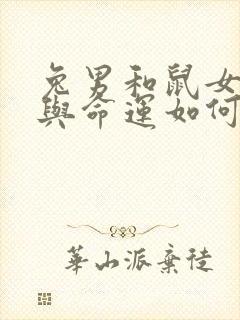 兔男和鼠女
與命運如何
華山派棄徒